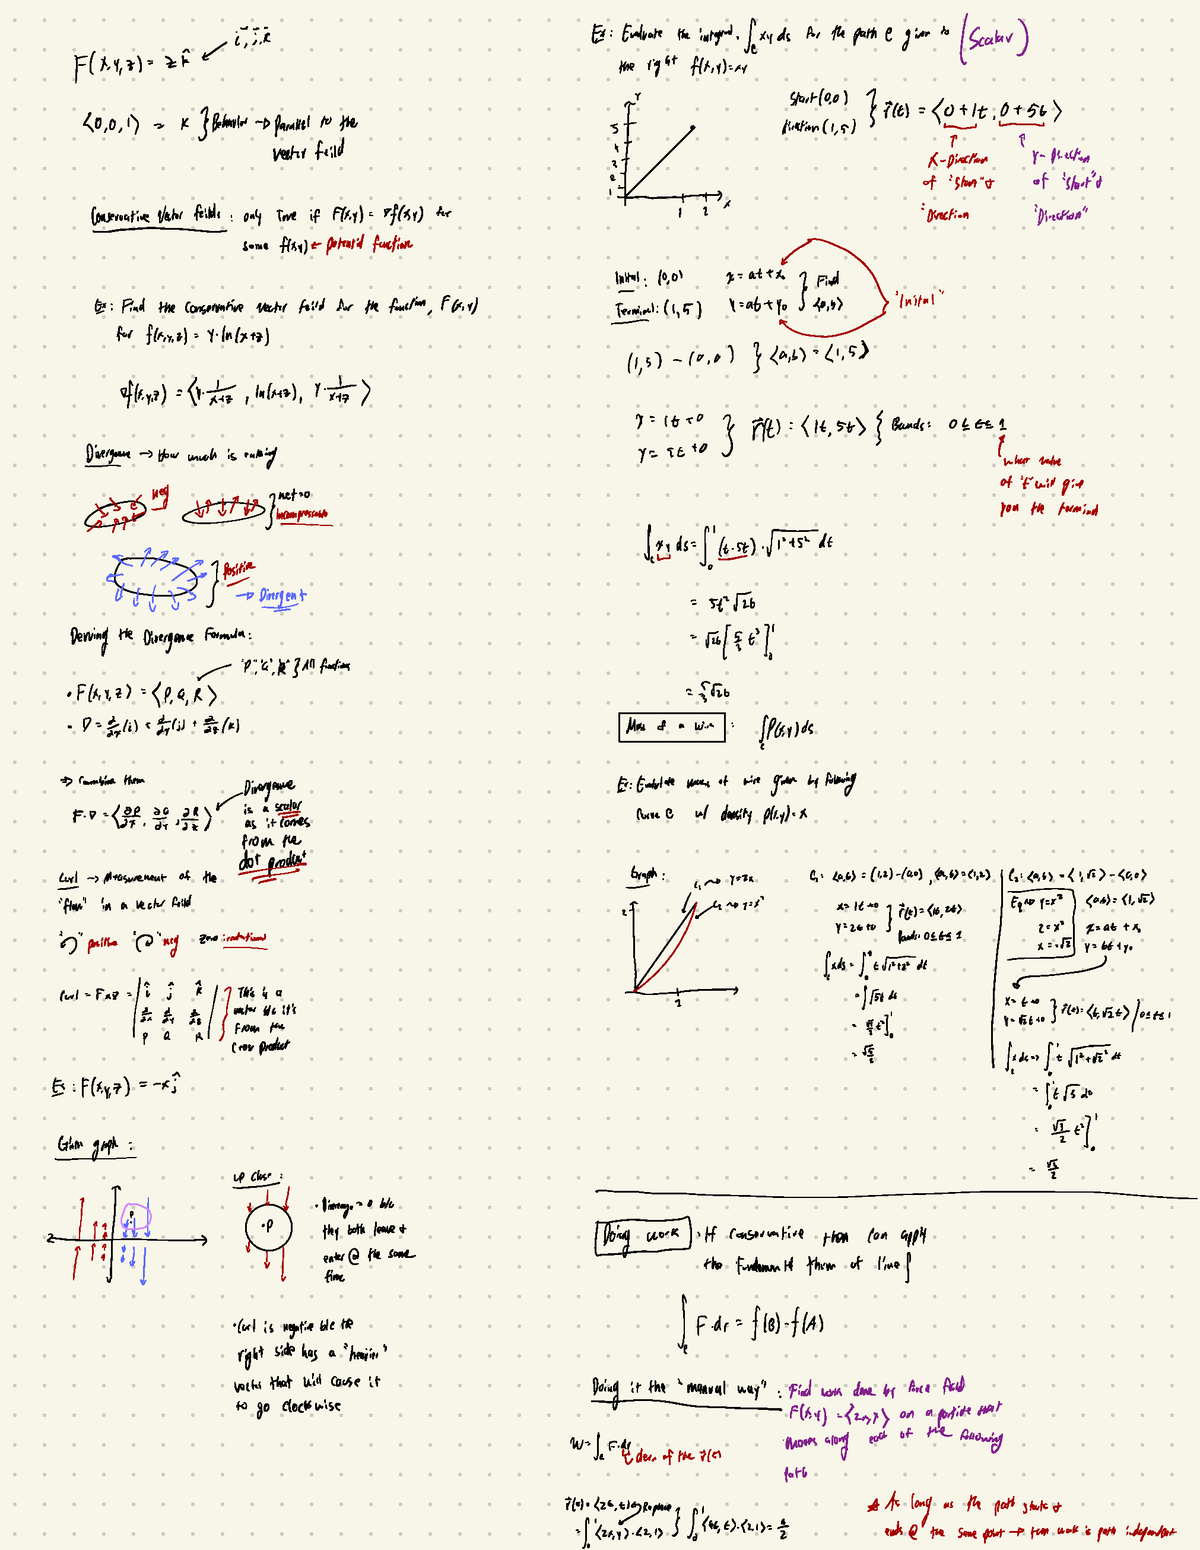 F(x,y,z) = z k̂ ← i, j, k
⟨0,0,1⟩ = k } Behavior → Parallel to the
vector feild
Conservative Vector feilds : only True if F(x,y) = ∇f(x,y) for
some f(x,y) ← potential function
Ex: Find the conservative vector feild for the function, F(x,y)
for f(x,y,z) = y·ln(x+z)
∇f(x,y,z) = ⟨y·1/(x+z), ln(x+z), y·1/(x+z)⟩
Divergence → How much is entering
neg
net=0
incompressible
Positive
→ Divergent
Deriving the Divergence Formula:
"P", "Q", "R" } All functions
• F(x,y,z) = ⟨P, Q, R⟩
• ∇ = ∂/∂x (i) + ∂/∂y (j) + ∂/∂z (k)
⇒ Combine them
F·∇ = ⟨∂P/∂x, ∂Q/∂y, ∂R/∂z⟩
Divergence
is a scalar
as it comes
from the
dot product
Curl → Measurement of the
"flow" in a vector feild
"↺" positive "↻" neg Zero irrotational
Curl = F x ∇ = | î ĵ k̂
∂/∂x ∂/∂y ∂/∂z
P Q R |
This is a
vector b/c it's
from the
Cross product
Ex: F(x,y,z) = -x ĵ
Given graph :
P
up close :
•P
• Divergence = 0 b/c
they both leave +
enter @ the same
time
• Curl is negative b/c the
right side has a "heavier"
vector that will cause it
to go clockwise
Ex: Evaluate the integral, ∫c xy ds for the path C given to (Scalar)
the right f(x,y)=xy
y
5
4
3
2
1
1 2 x
Start (0,0)
Direction (1,5) } r(t) = ⟨0+1t, 0+5t⟩
X-Direction
of "start" +
"Direction
Y-Direction
of "start" +
"Direction"
Inital: (0,0) x = at + x₀ } Find
Terminal: (1,5) y = at + y₀ ⟨a,b⟩
"Inital"
(1,5) - (0,0) } ⟨a,b⟩ = ⟨1,5⟩
x = 1t + 0
y = 5t + 0 } r(t) : ⟨1t, 5t⟩ { Bounds: 0 ≤ t ≤ 1
what value
of "t" will give
you the terminal
∫c xy ds = ∫₀¹ (t·5t)·√(1²+5²) dt
= 5t²√26
= √26 [5/3 t³]₀¹
= 5/3 √26
Mass of a wire : ∫c ρ(x,y) ds
Ex: Evaluate mass of wire given by following
Curve C w/ density ρ(x,y) = x
Graph:
C₁ → y=2x
C₂ → y=x²
2
1
C₁: ⟨a,b⟩ = (1,2) - (0,0), ⟨a,b⟩ = ⟨1,2⟩
x = 1t + 0
y = 2t + 0 } r(t) = ⟨1t, 2t⟩
Bounds: 0 ≤ t ≤ 1
∫c x ds = ∫₀¹ t √(1²+2²) dt
= ∫ √5 t dt
= √5/2 t²]₀¹
= √5/2
C₂: ⟨a,b⟩ = ⟨1,√2⟩ - ⟨0,0⟩
Eq → y=x² ⟨a,b⟩ = ⟨1,√2⟩
2 = x² x = at + x₀
x = √2 y = bt + y₀
x = t + 0
y = √2t + 0 } r(t) = ⟨t, √2t⟩ / 0 ≤ t ≤ 1
∫c x ds → ∫₀¹ t √(1²+√2²) dt
= ∫₀¹ t √3 dt
= √3/2 t²]₀¹
= √3/2
Doing work : If conservative then can apply
the Fundamental them of line ∫
∫c F·dr = f(B) - f(A)
Doing it the "manual way" : Find work done by force feild
F(x,y) = ⟨2x,y⟩ on a particle that
moves along each of the following
path
W = ∫c F·dr
derv. of the r(t)
r(t) = ⟨2t, t⟩ Replace
= ∫₀¹ ⟨2x,y⟩·⟨2,1⟩ } ∫₀¹ ⟨4t, t⟩·⟨2,1⟩ = 9/2
★ As long as the path starts +
ends @ the same point → then work is path independent